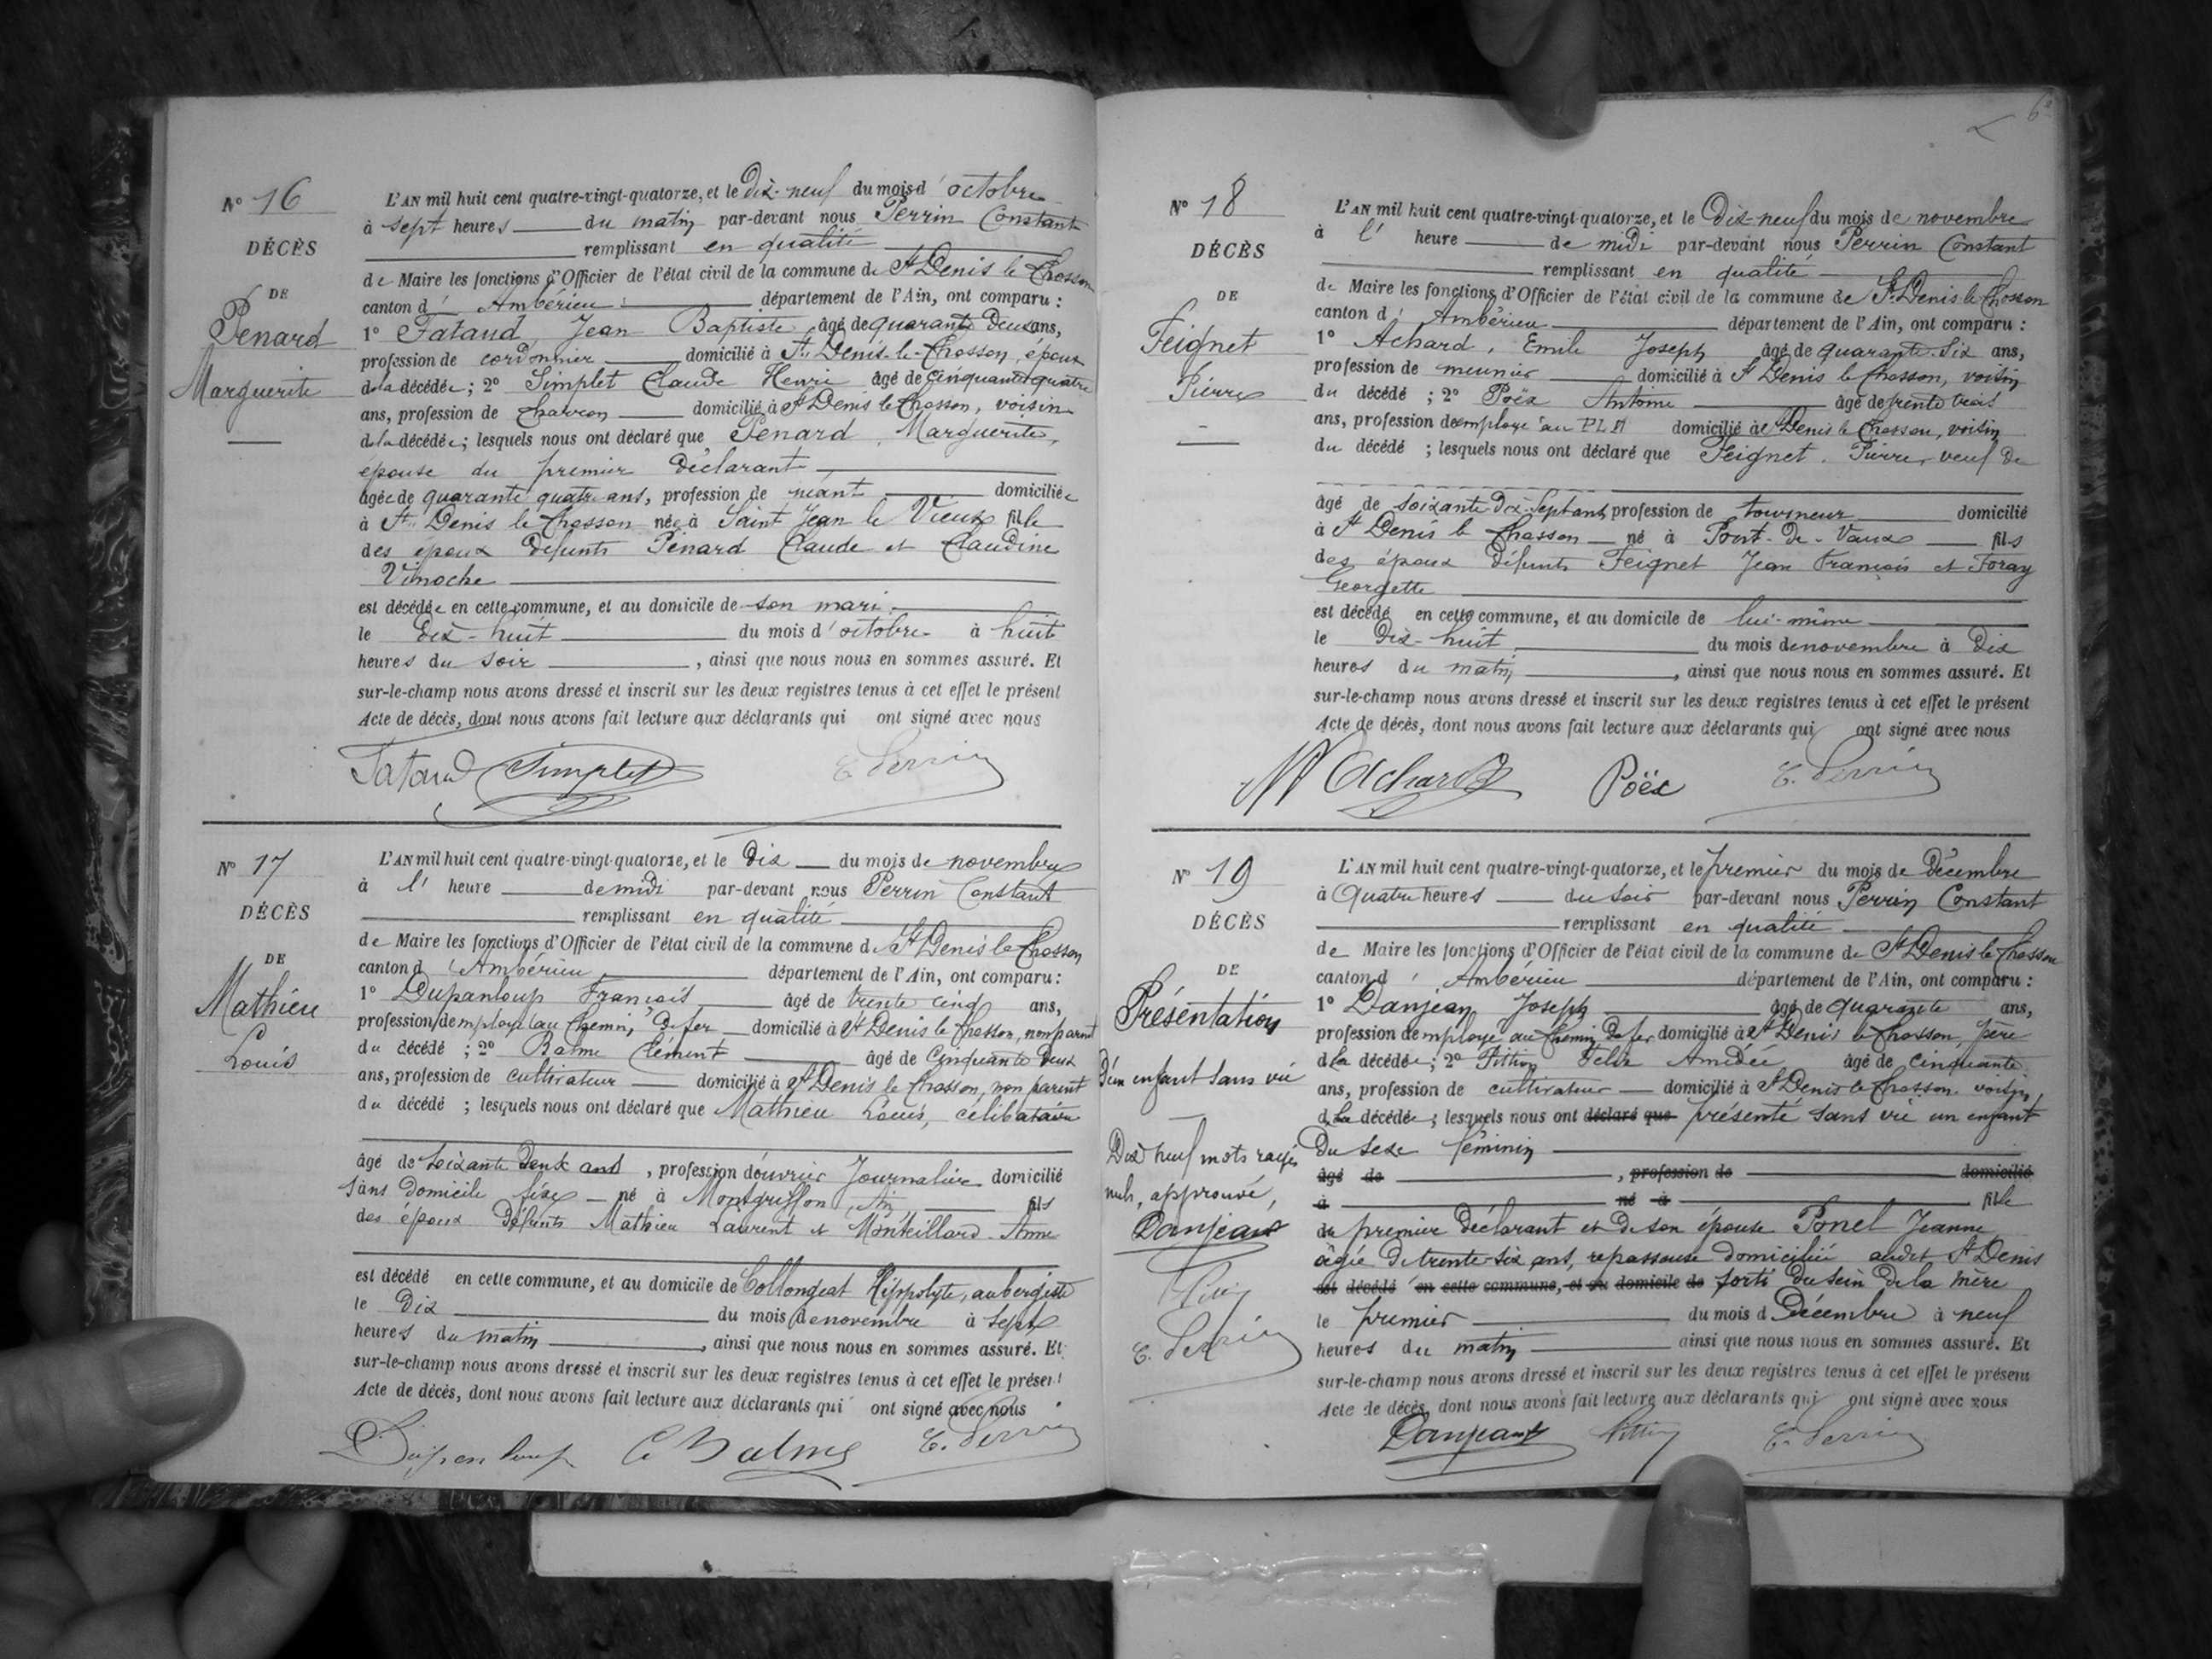 N° 16
DÉCÈS
DE
Penard
Marguerite
L'AN mil huit cent quatre-vingt-quatorze, et le Dix-neuf du mois d'octobre
à sept heures du matin par-devant nous Perrin Constant
remplissant en qualité
de Maire les fonctions d'Officier de l'état civil de la commune de St Denis le Chosson
canton d'Ambérieu département de l'Ain, ont comparu :
1° Fataud Jean Baptiste âgé de quarante deux ans,
profession de cordonnier domicilié à St Denis-le-Chosson, époux
de la décédée ; 2° Simplet Claude Henri âgé de cinquante quatre
ans, profession de charron domicilié à St Denis le Chosson, voisin
de la décédée ; lesquels nous ont déclaré que Penard, Marguerite,
épouse du premier déclarant
âgée de quarante quatre ans, profession de néant domiciliée
à St Denis le Chosson née à Saint Jean le Vieux fille
des époux défunts Penard Claude et Claudine
Vinoche
est décédée en cette commune, et au domicile de son mari
le dix-huit du mois d'octobre à huit
heures du soir, ainsi que nous nous en sommes assuré. Et
sur-le-champ nous avons dressé et inscrit sur les deux registres tenus à cet effet le présent
Acte de décès, dont nous avons fait lecture aux déclarants qui ont signé avec nous
Fataud Simplet C. Perrin
N° 17
DÉCÈS
DE
Mathieu
Louis
L'AN mil huit cent quatre-vingt-quatorze, et le Dix du mois de novembre
à l' heure de midi par-devant nous Perrin Constant
remplissant en qualité
de Maire les fonctions d'Officier de l'état civil de la commune de St Denis le Chosson
canton d'Ambérieu département de l'Ain, ont comparu :
1° Dupanloup François âgé de trente cinq ans,
profession d'employé au chemin de fer domicilié à St Denis le Chosson, non parent
du décédé ; 2° Balme Clément âgé de cinquante deux
ans, profession de cultivateur domicilié à St Denis le Chosson, non parent
du décédé ; lesquels nous ont déclaré que Mathieu Louis, célibataire
âgé de soixante deux ans, profession d'ouvrier Journalier domicilié
sans domicile fixe né à Montgriffon, Ain, fils
des époux défunts Mathieu Laurent et Monteillard Anne
est décédé en cette commune, et au domicile de Collongeat Hippolyte, aubergiste
le Dix du mois de novembre à sept
heures du matin, ainsi que nous nous en sommes assuré. Et
sur-le-champ nous avons dressé et inscrit sur les deux registres tenus à cet effet le présent
Acte de décès, dont nous avons fait lecture aux déclarants qui ont signé avec nous
Dupanloup C Balme C. Perrin
6
N° 18
DÉCÈS
DE
Feignet
Pierre
L'AN mil huit cent quatre-vingt-quatorze, et le Dix-neuf du mois de novembre
à l' heure de midi par-devant nous Perrin Constant
remplissant en qualité
de Maire les fonctions d'Officier de l'état civil de la commune de St Denis le Chosson
canton d'Ambérieu département de l'Ain, ont comparu :
1° Achard, Emile Joseph âgé de quarante-six ans,
profession de meunier domicilié à St Denis le Chosson, voisin
du décédé ; 2° Poëx Antoine âgé de trente trois
ans, profession d'employé au PLM domicilié à St Denis le Chosson, voisin
du décédé ; lesquels nous ont déclaré que Feignet, Pierre, veuf de
âgé de soixante dix-sept ans, profession de tourneur domicilié
à St Denis le Chosson né à Pont-de-Vaux fils
des époux défunts Feignet Jean François et Foray
Georgette
est décédé en cette commune, et au domicile de lui-même
le Dix-huit du mois de novembre à Dix
heures du matin, ainsi que nous nous en sommes assuré. Et
sur-le-champ nous avons dressé et inscrit sur les deux registres tenus à cet effet le présent
Acte de décès, dont nous avons fait lecture aux déclarants qui ont signé avec nous
Achard Poëx C. Perrin
N° 19
DÉCÈS
DE
Présentation
d'un enfant sans vie
Dix neuf mots rayés
nuls, approuvé,
Danjean
Pittion
C. Perrin
L'AN mil huit cent quatre-vingt-quatorze, et le premier du mois de Décembre
à Quatre heures du soir par-devant nous Perrin Constant
remplissant en qualité
de Maire les fonctions d'Officier de l'état civil de la commune de St Denis le Chosson
canton d'Ambérieu département de l'Ain, ont comparu :
1° Danjean Joseph âgé de quarante ans,
profession d'employé au chemin de fer domicilié à St Denis le Chosson, père
de la décédée ; 2° Pittion Felix Amédée âgé de cinquante
ans, profession de cultivateur domicilié à St Denis le Chosson, voisin
de la décédée ; lesquels nous ont déclaré que présenté sans vie un enfant
du sexe féminin
âgé de , profession de domicilié
à né à fille
du premier déclarant et de son épouse Ponel Jeanne
âgée de trente-six ans, repasseuse domiciliée audit St Denis
est décédé en cette commune, et au domicile de sorti du sein de la mère
le premier du mois d Décembre à neuf
heures du matin ainsi que nous nous en sommes assuré. Et
sur-le-champ nous avons dressé et inscrit sur les deux registres tenus à cet effet le présent
Acte de décès, dont nous avons fait lecture aux déclarants qui ont signé avec nous
Danjean Pittion C. Perrin